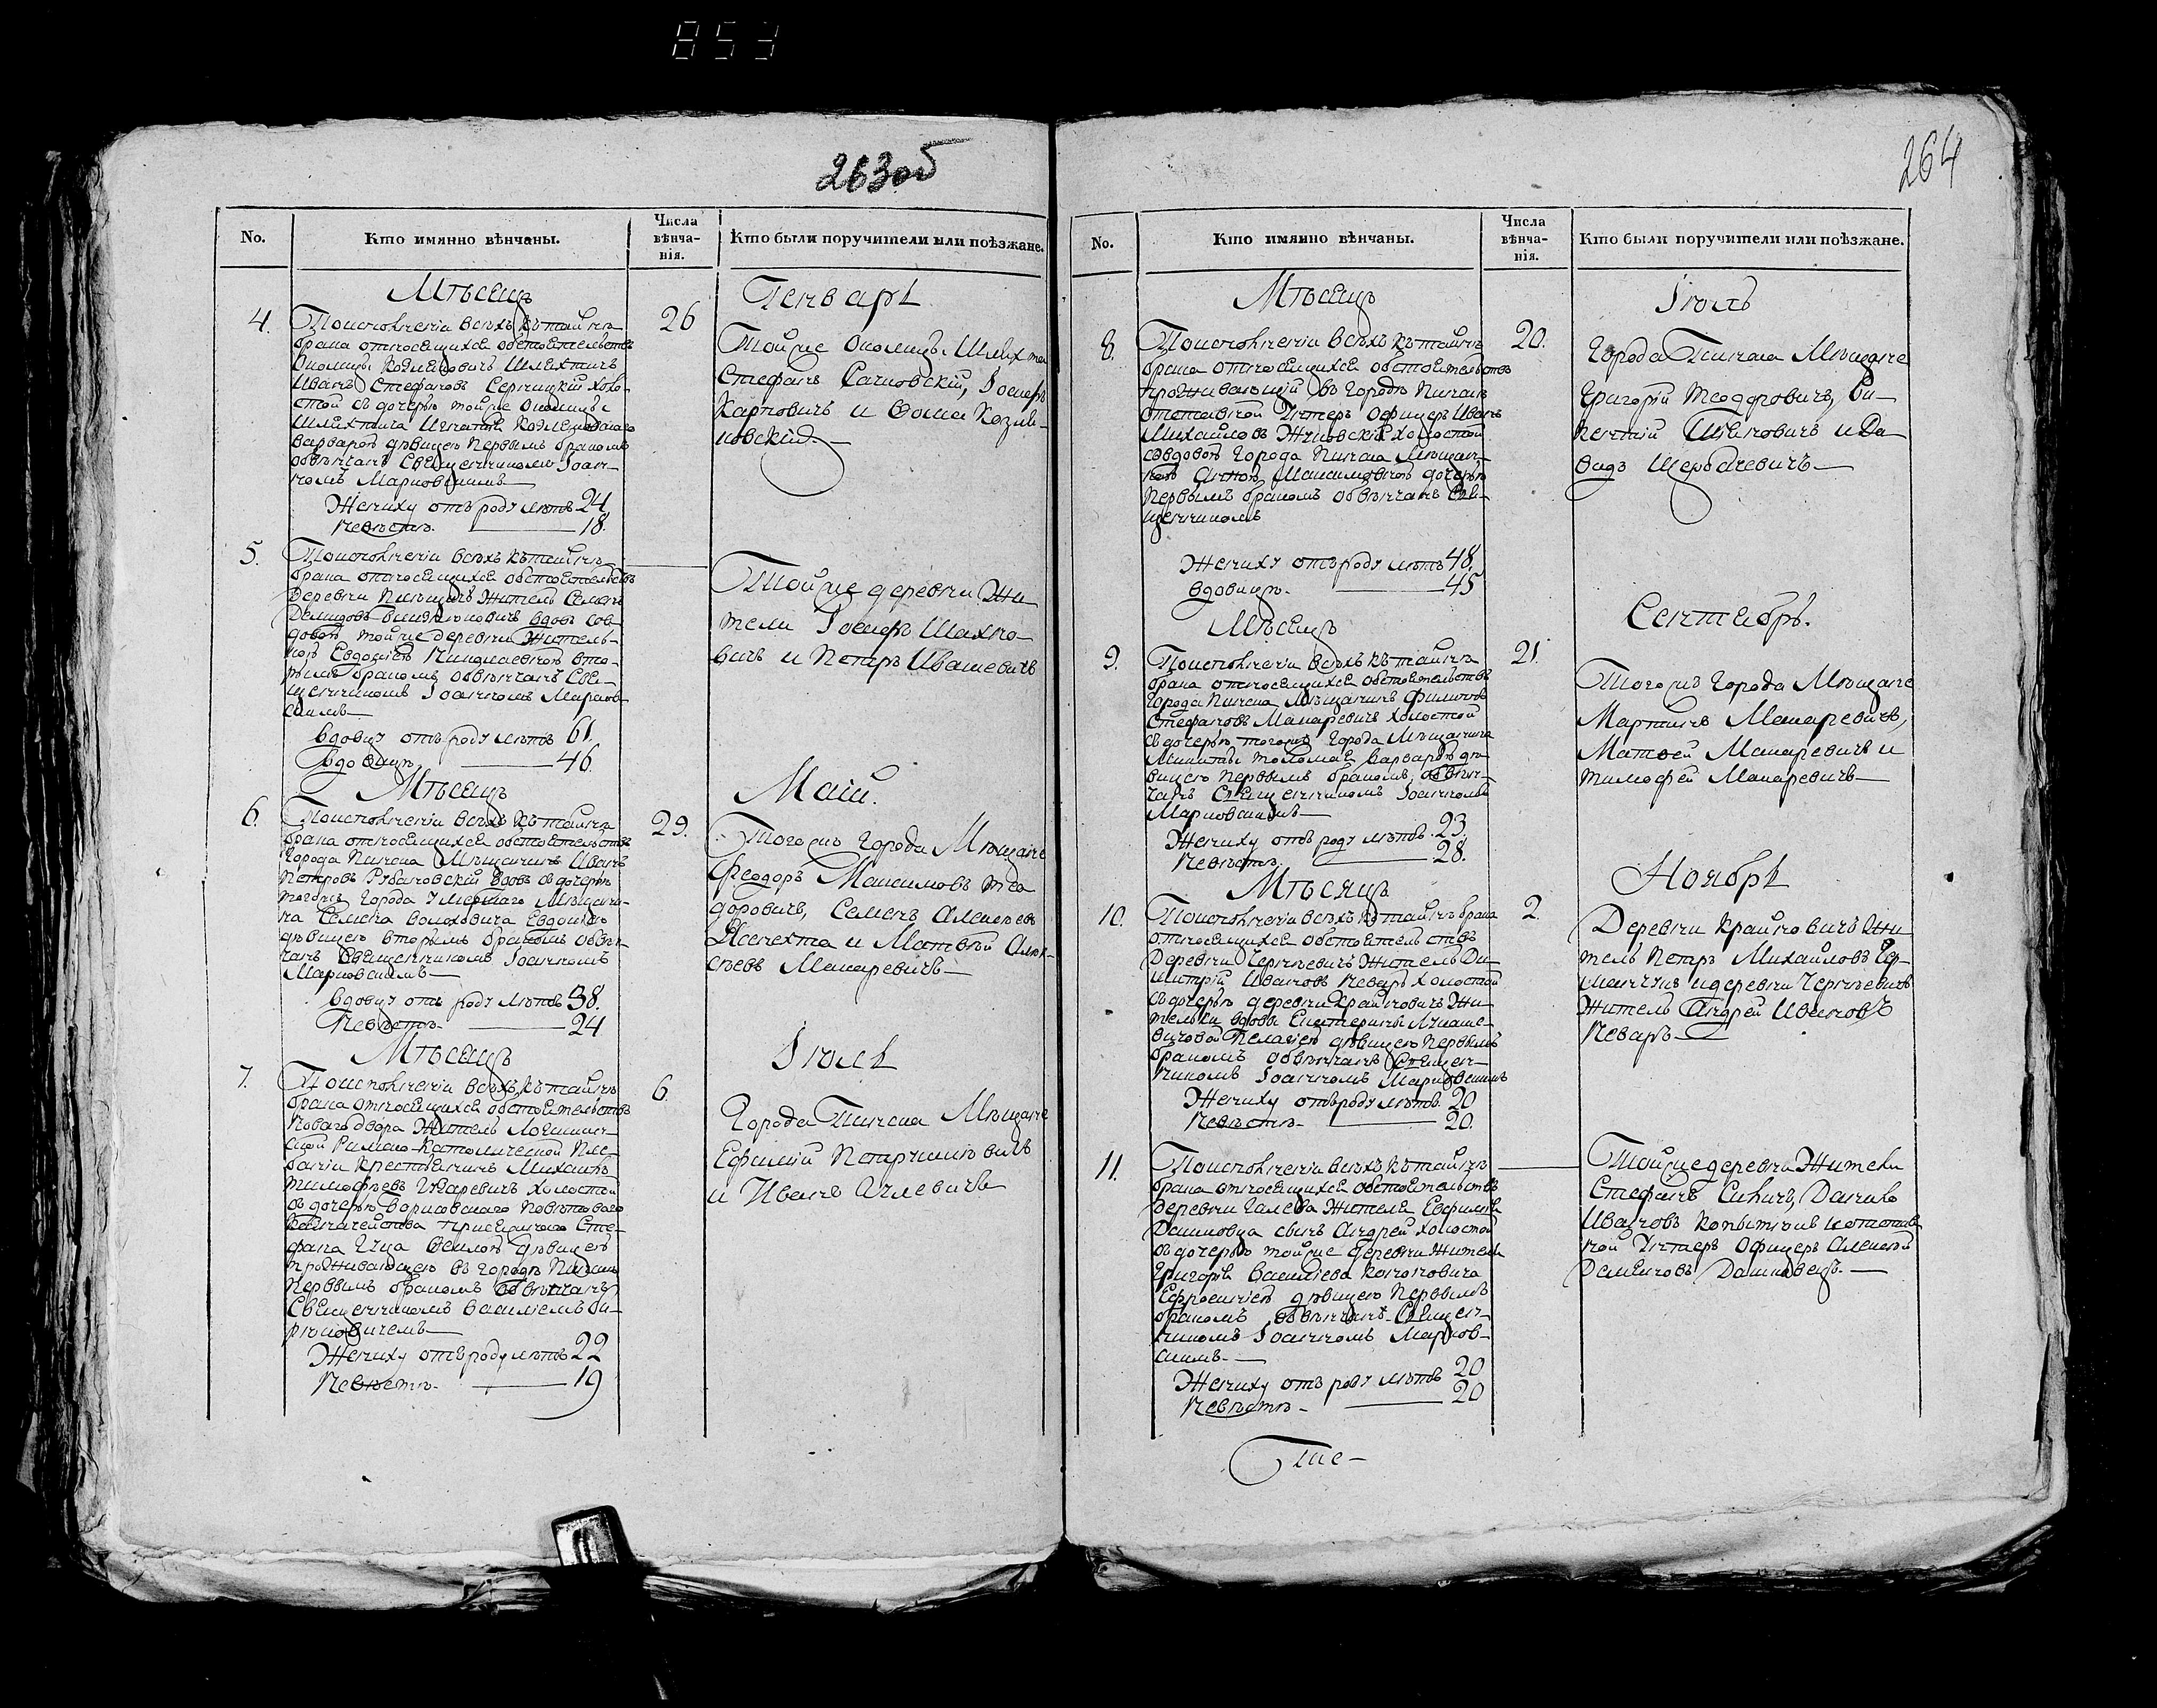 853
263об
No.
Кто имянно вѣнчаны.
Числа
вѣнча-
нія.
Кто были поручители или поѣзжане.
Мѣсецъ
Генварь
4.
По исполненіи всѣхъ къ тайнѣ
брака относящихся обстоятельствъ
Околицы Шляхтичъ
Иванъ Стефановъ Серницкій холо-
стой съ дочерью тойже Околицы
Шляхтича Игнатія
Варварою дѣвицею первымъ бракомъ
обвѣнчанъ Священникомъ Іоан-
номъ Марковскимъ
Жениху отъ роду лѣтъ 24
Невѣстѣ 18.
26
Тойже Околицы Шляхта
Стефанъ Сачковскій, Іосифъ
Карповичъ и Фома Козля-
ковскій
5.
По исполненіи всѣхъ къ тайнѣ
брака относящихся обстоятельствъ
Деревни Житель Семенъ
Демидовъ вдовъ со в-
довою тойже деревни Житель-
кою Евдокіею вто-
рымъ бракомъ обвѣнчанъ Свя-
щенникомъ Іоанномъ Марков-
скимъ
Вдовцу отъ роду лѣтъ 61.
Вдовицѣ 46.
Тойже деревни Жи-
тели Іосифъ Шахно-
вичъ и Петръ Ивашевичъ
Мѣсецъ
Маій.
6.
По исполненіи всѣхъ къ тайнѣ
брака относящихся обстоятельствъ
Города Пинска Мѣщанинъ Иванъ
Петровъ Рубановскій вдовъ съ дочерью
тогожъ Города умершаго Мѣщани-
на Семена Волоховича Евдокіею
дѣвицею вторымъ бракомъ обвѣн-
чанъ Священникомъ Іоанномъ
Марковскимъ
Вдовцу отъ роду лѣтъ 38.
Невѣстѣ 24
29.
Тогожъ Города Мѣщане
Феодоръ Максимовъ Тео-
доровичъ, Семенъ Алексѣевъ
и Матвѣй Алек-
сѣевъ Макаревичъ
Мѣсецъ
Іюль
7.
По исполненіи всѣхъ къ тайнѣ
брака относящихся обстоятельствъ
Новаго двора Житель Логишин-
ской Римско-Католической Пле-
баніи Крестьянинъ Михаилъ
Тимофѣевъ холостой
съ дочерью Борисовскаго Повѣтоваго
Казначейства Присяжнаго Сте-
фана Ѳеклою дѣвицею
проживающею въ городѣ Пинскѣ
первымъ бракомъ обвѣнчанъ
Священникомъ Василіемъ Би-
рюковичемъ
Жениху отъ роду лѣтъ 22
Невѣстѣ 19
6.
Города Пинска Мѣщане
Ефимій
и Иванъ
264
No.
Кто имянно вѣнчаны.
Числа
вѣнча-
нія.
Кто были поручители или поѣзжане.
Мѣсецъ
Іюль
8.
По исполненіи всѣхъ къ тайнѣ
брака относящихся обстоятельствъ
проживающій въ городѣ Пинскѣ
отставной Унтеръ Офицеръ Иванъ
Михайловъ холостой
со вдовою Города Пинска Мѣщан-
кою Анною Максимовною дочерью
первымъ бракомъ обвѣнчанъ Свя-
щенникомъ
Жениху отъ роду лѣтъ 48.
Вдовицѣ. 45
20.
Города Пинска Мѣщане
Григорій Теодоровичъ, Ви-
кентій и Да-
видъ Щербачевичъ
Мѣсецъ
Сентябрь.
9.
По исполненіи всѣхъ къ тайнѣ
брака относящихся обстоятельствъ
Города Пинска Мѣщанинъ Филиппъ
Стефановъ Макаревичъ холостой
съ дочерью тогожъ Города Мѣщанина
Никиты Варварою дѣ-
вицею первымъ бракомъ обвѣн-
чанъ Священникомъ Іоанномъ
Марковскимъ
Жениху отъ роду лѣтъ 23.
Невѣстѣ 28.
21.
Тогожъ Города Мѣщане
Мартинъ Макаревичъ,
Матвей Макаревичъ и
Тимофей Макаревичъ
Мѣсяцъ
Ноябрь
10.
По исполненіи всѣхъ къ тайнѣ брака
относящихся обстоятельствъ
Деревни Чернѣевичъ Житель Ди-
митрій Ивановъ Неваръ холостой
съ дочерью деревни Крайновичъ Жи-
тельки вдовы Екатерины Лукаше-
вичовой Пелагіею дѣвицею первымъ
бракомъ обвѣнчанъ Священ-
никомъ Іоанномъ Марковскимъ
Жениху отъ роду лѣтъ 20
Невѣстѣ 20.
2.
Деревни Крайновичъ Жи-
тель Петръ Михайловъ
и деревни Чернѣевичъ
Житель Андрей Ивановъ
Неваръ
11.
По исполненіи всѣхъ къ тайнѣ
брака относящихся обстоятельствъ
Деревни Галева Жителя Евфимія
Дашковца сынъ Андрей холостой
съ дочерью тойже деревни Жителя
Григорія Васильева Кононовича
Ефросиніею дѣвицею первымъ
бракомъ обвѣнчанъ Священ-
никомъ Іоанномъ Марков-
скимъ
Жениху отъ роду лѣтъ 20
Невѣстѣ 20
Тойже деревни Жители
Стефанъ Данило
Ивановъ и отстав-
ной Унтеръ Офицеръ Алексѣй
Семеновъ Дашковецъ.